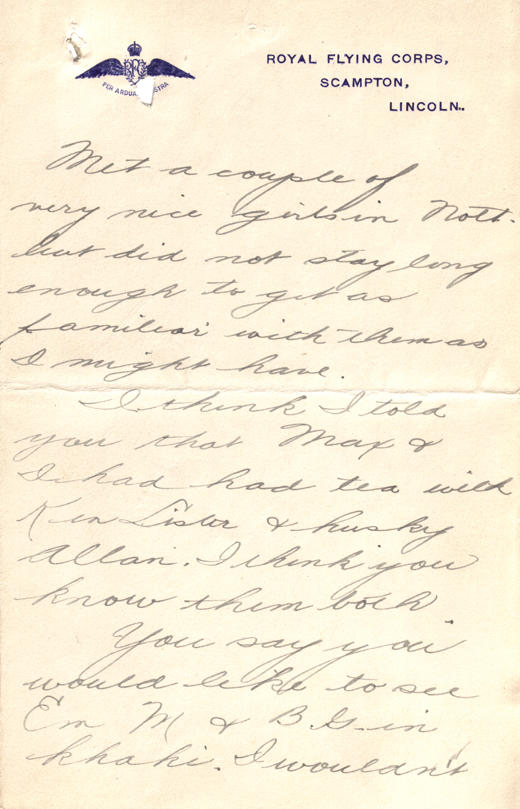 ROYAL FLYING CORPS,
SCAMPTON,
LINCOLN..
RFC
PER ARDUA STRA
Met a couple of
very nice girls in Nott.
but did not stay long
enough to get as
familiar with them as
I might have.
I think I told
you that Max &
I had had tea with
Ken Lister & husky
Allan. I think you
know them both
You say you
would like to see
Em M & B.G. in
khaki. I wouldn't